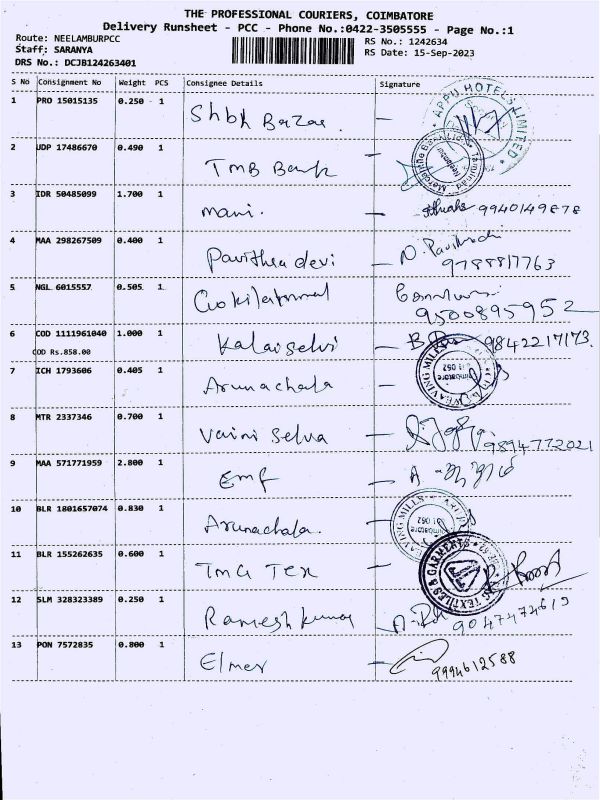 THE PROFESSIONAL COURIERS, COIMBATORE
Delivery Runsheet - PCC - Phone No.:0422-3505555 - Page No.:1
Route: NEELAMBURPCC
RS No.: 1242634
Staff: SARANYA
RS Date: 15-Sep-2023
DRS No.: DCJB124263401
S No Consignment No Weight PCS Consignee Details Signature
1 PRO 15015135 0.250 1 Shbh Bazar.
APPU HOTELS LIMITED
2 UDP 17486670 0.490 1 TMB Bank
Tamilnad Mercantile Bank Ltd
3 IDR 50485099 1.700 1 mani. 9940149878
4 MAA 298267509 0.400 1 Pavithra devi
9788817763
5 NGL 6015557 0.505 1
9500895952
6 COD 1111961040 1.000 1 Kalaiselvi 9842217173.
COD Rs.858.00
7 ICH 1793606 0.405 1 Arunachala
WEAVING MILLS
8 MTR 2337346 0.700 1 Vaini Selva 9894772021
9 MAA 571771959 2.800 1 Emf
10 BLR 1801657074 0.830 1 Arunachala.
11 BLR 155262635 0.600 1 TMG Tex
TEXTILES & GARMENTS
12 SLM 328323389 0.250 1 Ramesh kumar
9047474619
13 PON 7572835 0.800 1 Elmer
9994612588